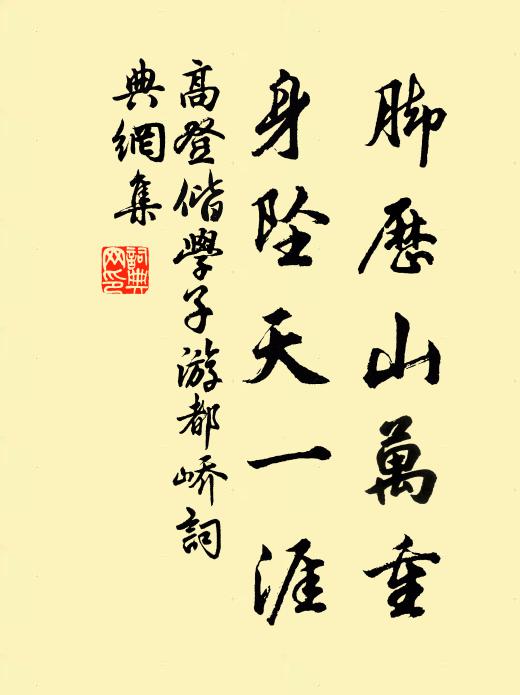 脚歷山萬重
身墜天一涯
高登偕學子游都嶠詞
典網集
詞典網印